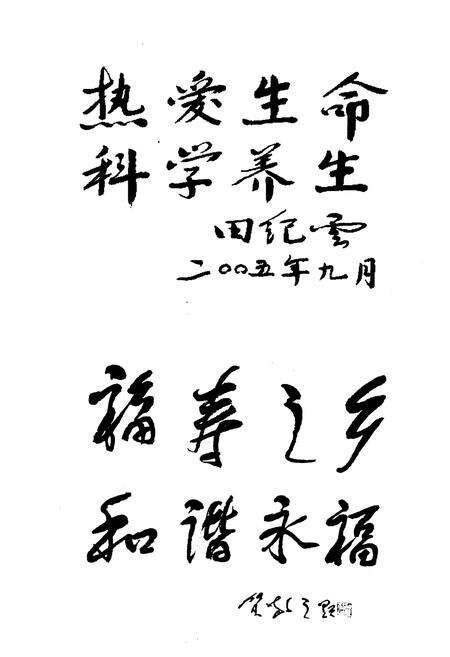 热爱生命
科学养生
田纪雲
二〇〇五年九月
福寿之乡
和谐永福